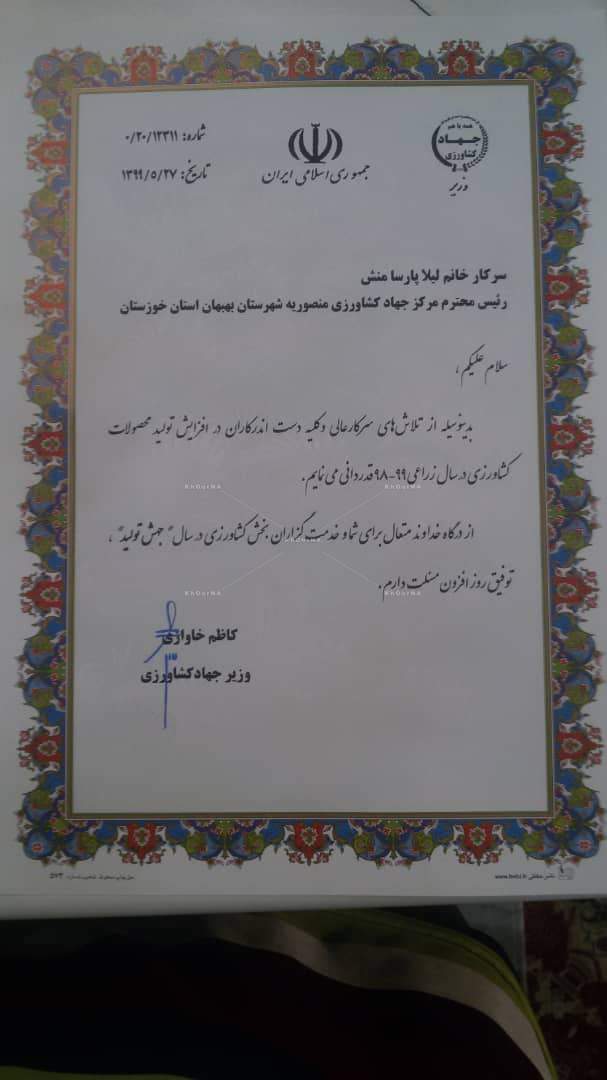 شماره: ۰/۲۰/۱۲۳۱۱
تاریخ: ۱۳۹۹/۵/۲۷
جمهوری اسلامی ایران
همه با هم
جهاد
کشاورزی
وزیر
سرکار خانم لیلا پارسا منش
رئیس محترم مرکز جهاد کشاورزی منصوریه شهرستان بهبهان استان خوزستان
سلام علیکم ،
بدینوسیله از تلاش‌های سرکارعالی وکلیه دست اندرکاران در افزایش تولید محصولات
کشاورزی در سال زراعی ۹۹-۹۸ قدردانی می نمایم.
از درگاه خداوند متعال برای شما و خدمت گزاران بخش کشاورزی در سال " جهش تولید" ،
توفیق روز افزون مسئلت دارم.
کاظم خاوازی
وزیر جهادکشاورزی